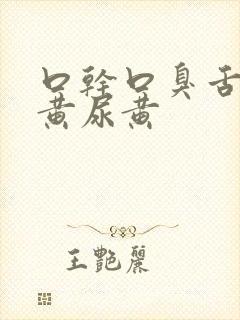 口干口臭舌
黄尿黄
王艷麗